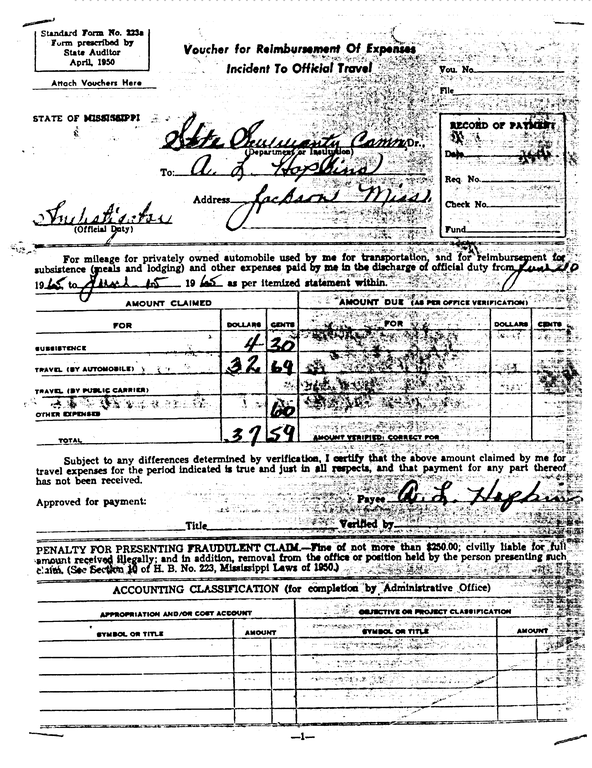 Standard Form No. 223a
Form prescribed by
State Auditor
April, 1950
Attach Vouchers Here
Voucher for Reimbursement Of Expenses
Incident To Official Travel
Vou. No.
File
STATE OF MISSISSIPPI
RECORD OF PAYMENT
State Sovereignty Comm Dr.,
(Department or Institution)
Date
To: A. L. Hopkins
Req. No.
Address Jackson Miss.
Check No.
(Official Duty)
Fund
For mileage for privately owned automobile used by me for transportation, and for reimbursement for
subsistence (meals and lodging) and other expenses paid by me in the discharge of official duty from June 10
1965 to June 15 1965 as per itemized statement within.
AMOUNT CLAIMED AMOUNT DUE (AS PER OFFICE VERIFICATION)
FOR DOLLARS CENTS FOR DOLLARS CENTS
SUBSISTENCE 4 30
TRAVEL (BY AUTOMOBILE) 32 69
TRAVEL (BY PUBLIC CARRIER)
OTHER EXPENSES 60
TOTAL 37 59 AMOUNT VERIFIED: CORRECT FOR
Subject to any differences determined by verification, I certify that the above amount claimed by me for
travel expenses for the period indicated is true and just in all respects, and that payment for any part thereof
has not been received.
Approved for payment: Payee A. L. Hopkins
Title Verified by
PENALTY FOR PRESENTING FRAUDULENT CLAIM.—Fine of not more than $250.00; civilly liable for full
amount received illegally; and in addition, removal from the office or position held by the person presenting such
claim. (See Section 10 of H. B. No. 223, Mississippi Laws of 1950.)
ACCOUNTING CLASSIFICATION (for completion by Administrative Office)
APPROPRIATION AND/OR COST ACCOUNT OBJECTIVE OR PROJECT CLASSIFICATION
SYMBOL OR TITLE AMOUNT SYMBOL OR TITLE AMOUNT
—1—